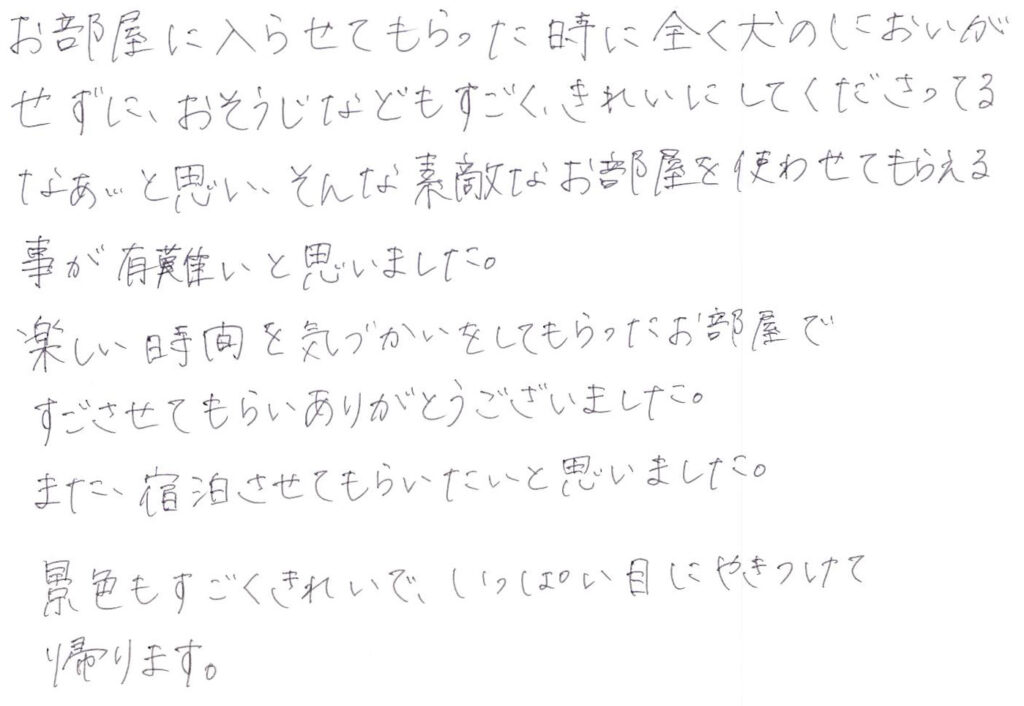 お部屋に入らせてもらった時に全く犬のにおいが
せずに、おそうじなどもすごく、きれいにしてくださってる
なぁ…と思い、そんな素敵なお部屋を使わせてもらえる
事が有難いと思いました。
楽しい時間を気づかいをしてもらったお部屋で
すごさせてもらいありがとうございました。
また、宿泊させてもらいたいと思いました。
景色もすごくきれいで、いっぱい目にやきつけて
帰ります。